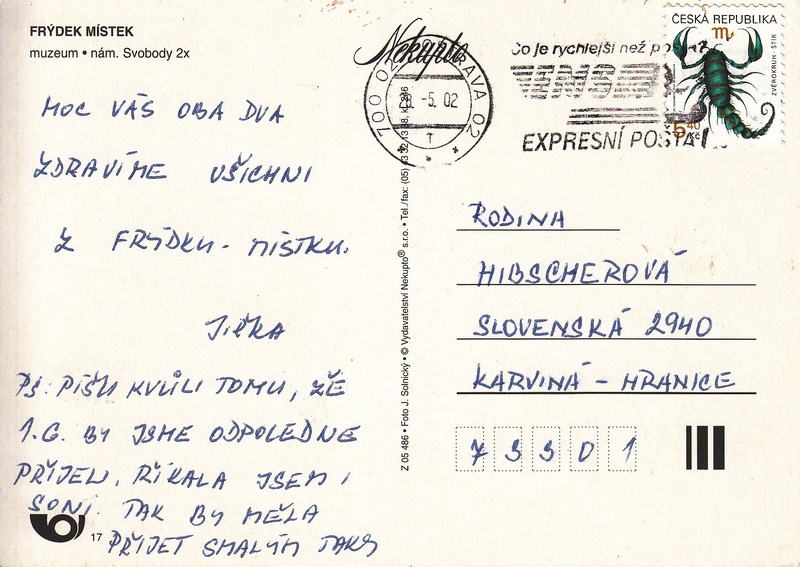 FRÝDEK MÍSTEK
muzeum • nám. Svobody 2x
MOC VÁS OBA DVA
ZDRAVÍME VŠICHNI
Z FRÝDKU - MÍSTKU.
JIŘKA
PS: PÍŠU KVŮLI TOMU, ŽE
1.6. BY JSME ODPOLEDNE
PŘIJELI, ŘÍKALA JSEM I
SONI. TAK BY MĚLA
PŘIJET S MALÝM TAKY
17
Z 05 486 • Foto J. Solnický • © Vydavatelství Nekupto® s.r.o. • Tel./fax: (05)
Nekupto
700 02 OSTRAVA 02
-5. 02
Co je rychlejší než
EMS
EXPRESNÍ POŠTA!
ČESKÁ REPUBLIKA
ZVĚROKRUH - ŠTÍR
5 40 Kč
RODINA
HIBSCHEROVÁ
SLOVENSKÁ 2940
KARVINÁ - HRANICE
73301